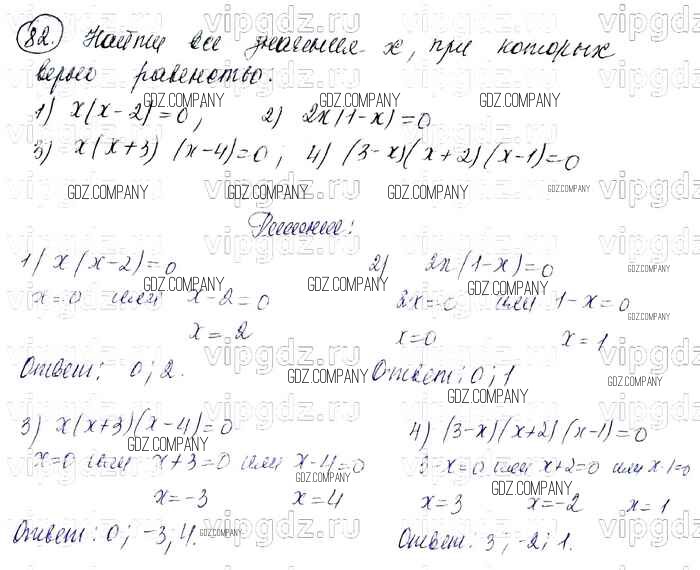 82. Найти все значения x, при которых
верно равенство.
1) x(x-2)=0; 2) 2x(1-x)=0
3) x(x+3)(x-4)=0; 4) (3-x)(x+2)(x-1)=0
Решение:
1) x(x-2)=0
x=0 или x-2=0
x=2
Ответ: 0; 2.
2) 2x(1-x)=0
2x=0 или 1-x=0
x=0 x=1
Ответ: 0; 1
3) x(x+3)(x-4)=0
x=0 или x+3=0 или x-4=0
x=-3 x=4
Ответ: 0; -3; 4.
4) (3-x)(x+2)(x-1)=0
3-x=0 или x+2=0 или x-1=0
x=3 x=-2 x=1
Ответ: 3; -2; 1.
GDZ.COMPANY
vipgdz.ru